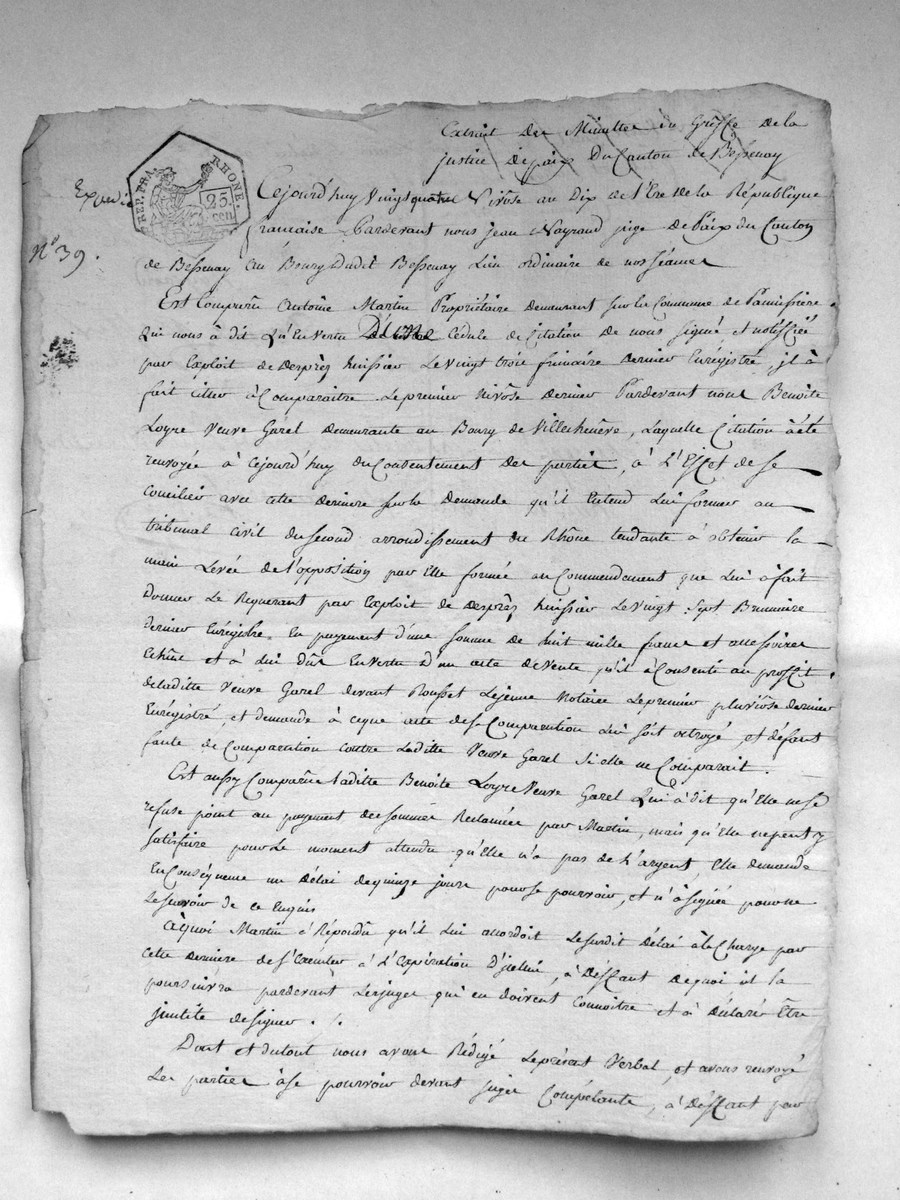 Extrait des Minuttes du Greffe de la
justice de paix Du Canton de Bessenay
REP. FRA. RHONE
25. cen
Expédié
N° 39.
Cejourd'huy Vingt quatre Nivôse an Dix de l'Ere de la République
francaise Pardevant nous Jean Nayrand juge de Paix du Canton
de Bessenay au Bourg dudit Bessenay Lieu ordinaire de nos séances
Est Comparu Antoine Martin Propriétaire demeurant sur la Commune de Panissière
Qui nous à dit Qu'En Vertu D'une Cédule de Citation de nous signé et notiffiée
par Exploit de Desprès huissier Le vingt trois frimaire dernier Enrégistré, il à
fait citter à Comparaitre Le premier Nivôse dernier Pardevant nous Benoite
Loyre Veuve Garel demeurante au Bourg de Villechenêve, Laquelle Citation à été
renvoyée à Cejourd'huy du Consentement des parties, à L'Effet de se
Concilier avec cette dernière sur la Demande qu'il Entend Lui former au
tribunal civil du second arrondissement du Rhône tendante à obtenir la
main Levée de l'opposition par Elle formée au Commendement que Lui à fait
Donner Le Requerant par Exploit de Desprès huissier Le vingt Sept Brumaire
dernier Enrégistre, En payement d'une somme de huit mille francs et assessoires
Echûs et à Lui Dûs En Vertu D'un acte de Vente qu'il à Consenti au proffit
de laditte Veuve Garel devant Rousset Lejeune Notaire Le premier pluviôse dernier
Enrégistré, et demande à ce que acte de sa Comparution Lui soit octroyé, et deffaut
faute de Comparution contre Laditte Veuve Garel Si elle ne Comparait.
Est aussy Comparûe laditte Benoite Loyre Veuve Garel Qui à dit qu'Elle ne se
refuse point au payement des sommes Reclamées par Martin, mais qu'Elle ne peut y
satisfaire pour Le moment attendu qu'Elle n'a pas de L'argent, Elle demande
En Conséquence un Délai de quinze jours pour se pourvoir, et n'à signée pour ne
Le savoir de ce Enquis
à quoi Martin à Répondû qu'il Lui accordoit Le susdit Délai à la Charge par
cette dernière de s'Exécuter à L'Expiration D'icelui, à Deffaut de quoi il la
poursuivra pardevant Les juges qui en doivent Connoitre et à Déclaré Être
jnutile de signer ./.
Dont et du tout nous avons Rédigé Le présent Verbal, et avons renvoyé
Les parties à se pourvoir devant juges Compétants, à Deffaut par